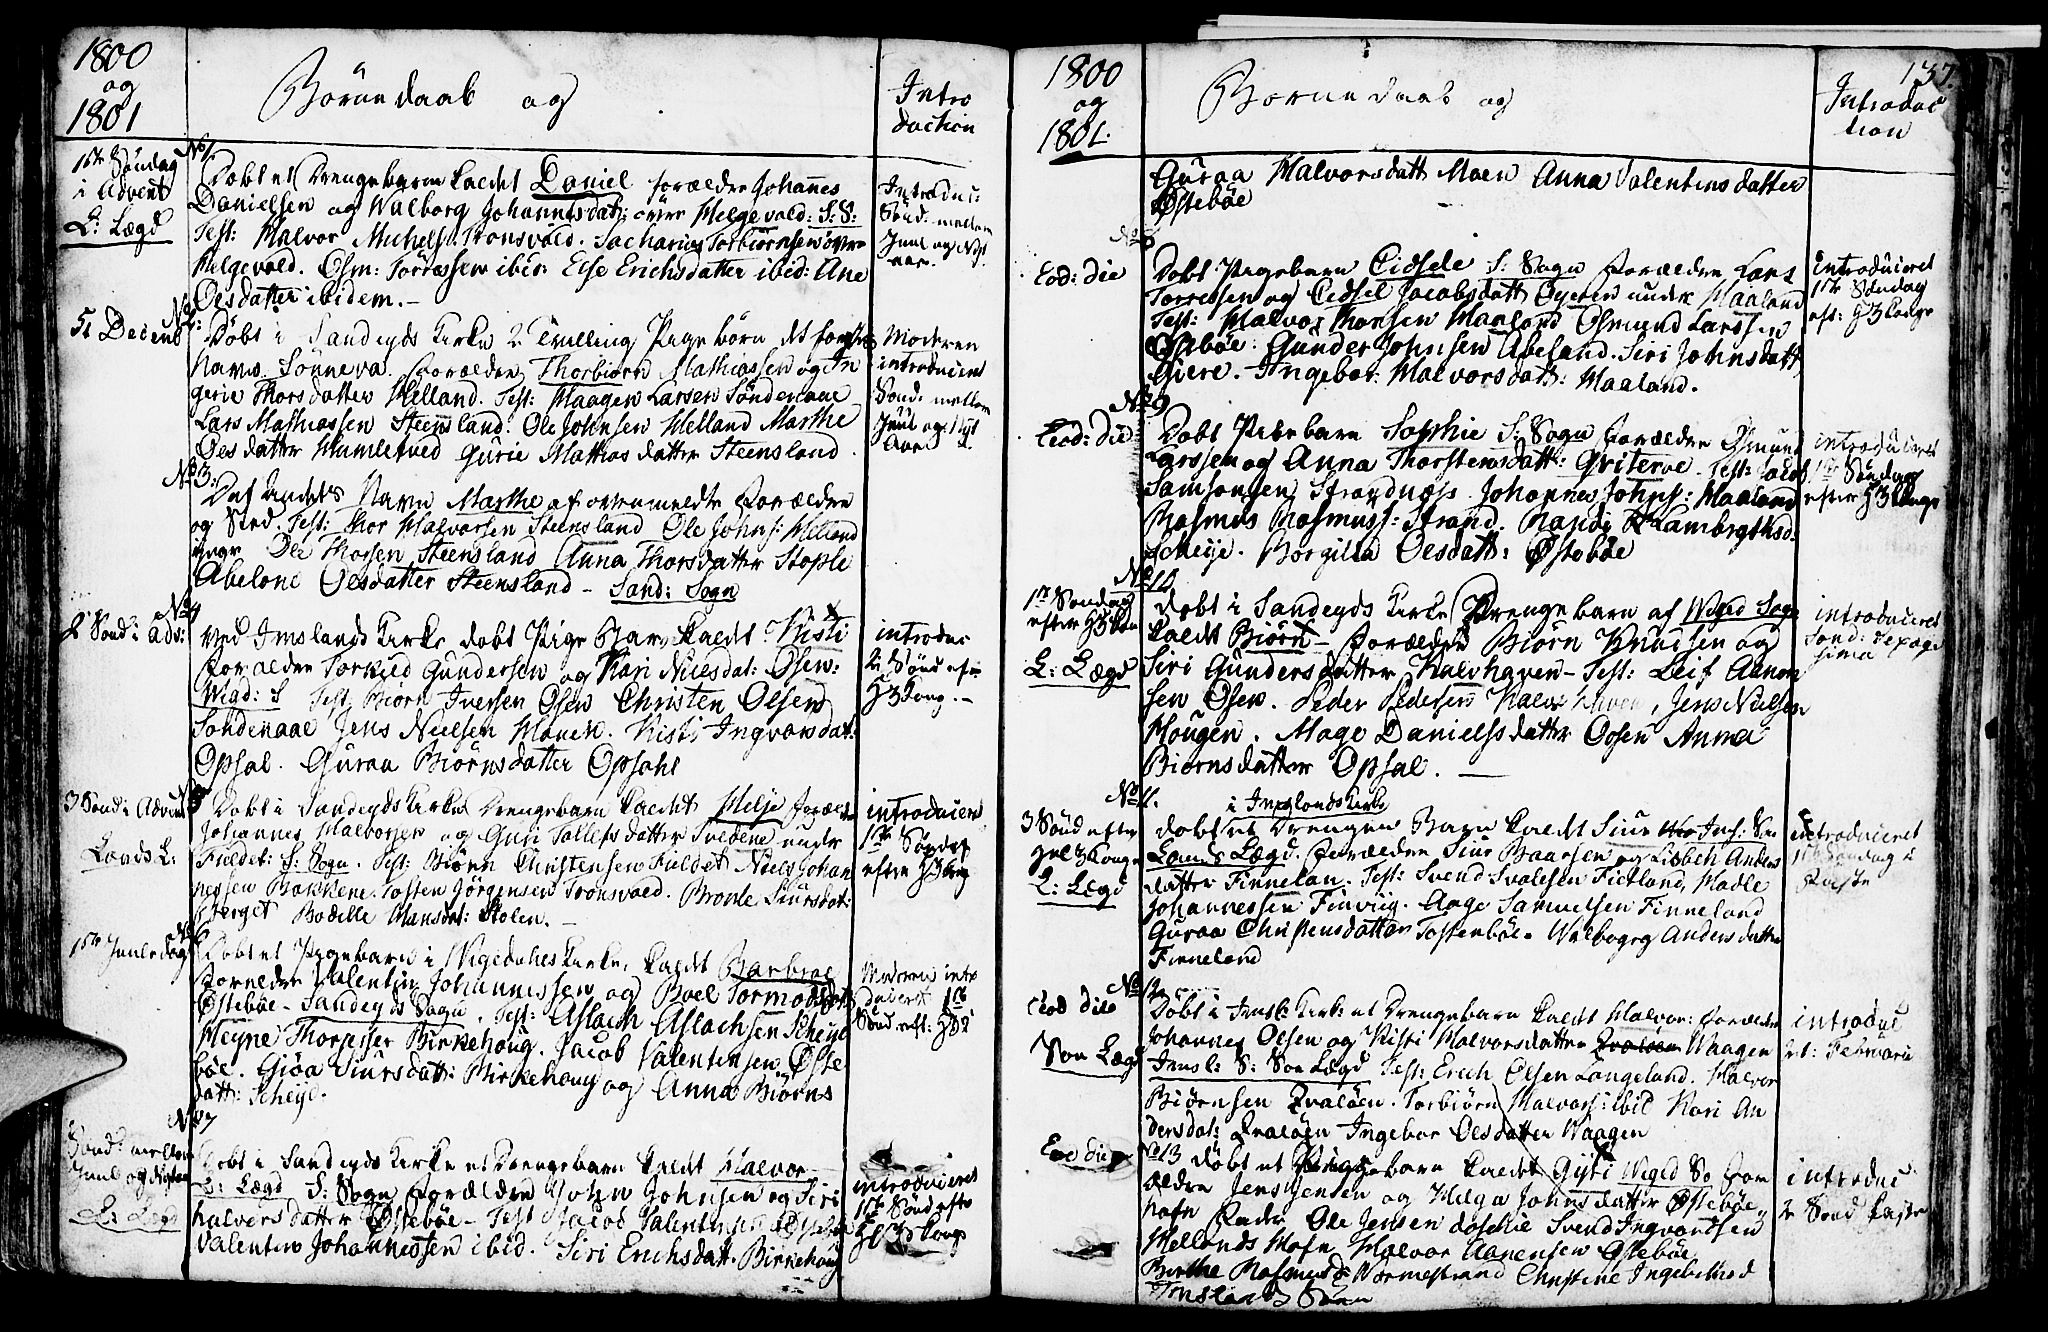 1800
og
1801
Börne daab og
Intro
duction
No 1
1ste Søndag
i Advent
L: Lægd
Døbt et Drengebarn kaldet Daniel forældre Johannes
Danielsen og Walborg Johannesdat: øvre Helgevold: S: S:
Test: Halvor Michels: Tronsvold. Sacharias Torbiørnsen øvre
Helgevold. Osm: Torressen ibid: Else Erichsdatter ibid: Ane
Olesdatter ibidem.
Introdui:
Sönd: mellem
Juul og Nyt
aar.
No 2
5te Decemb:
Døbt i Sandeyds Kirke 2 Tvilling Pigebörn det förstes
Navn Sönneva. Forældre Thorbiörn Mathiassen og In
gerie Thorsdatter Helland. Test: Haagen Larsen Söndenaae
Lars Mathiassen Steensland. Ole Johnsen Helland Marthe
Olesdatter Humletved Gurie Mathiasdatter Steensland.
Moderen
introduceret
Sönd: mellem
Juul og Nyt
Aar
No 3:
Det Andets Navn Marthe af ovenmeldte Forældre
og Sted. Test: Thor Halvorsen Steensland Ole Johns: Helland
yngr Ole Thorsen Steensland Anna Thorsdatter Stople
Abelone Olesdatter Steensland - Sand: Sogn
No 4
2 Sönd: i Adv:
Ved Imslands Kirke döbt Pige Barn kaldt Kisti
Forældre Torkild Gundersen og Kari Nielsdat: Ølsen:
Wigd: S Test: Biørn Iversen Ølsen Christen Olsen
Söndenaae Jens Nielsen Hauen. Kisti Ingvorsdat:
Opsal. Guraa Biørnsdatter Opsahl
introduc
2 Sönd eft
H 3 Kong.
No 5
3 Sönd i Advent
Lands L:
Döbt i Sandeyds Kirke Drengebarn kaldet Helje Forældre
Johannes Halvorsen og Guri Tollefsdatter Svedene under
Fuldet: S: Sogn. Test: Biørn Christensen Fuldet Niels Johan
nessen Bakkene. Tosten Jörgensen Tronsvold. Bronle Siursdat:
Berget Bodille Hansdat: Stolen.
introduceret
1ste Söndag
efter H 3 Kong
No 6
1ste Juuledag
Döbt et Pigebarn i Wigedahls Kirke, kaldt Barbroe
Forældre Valentin Johannessen og Boel Tormodsdatt:
Østebøe - Sandeyds Sogn, Test: Aslach Aslachsen Scheye
Heyne Thoresser Birkehoug. Jacob Valentinsen Øste
bøe. Giöa Siursdatt: Birkehoug og Anna Biörns
datt: Scheye.
Moderen intro
duceret 1ste
Sönd eft: H 3 K
No 7
Sönd: mellem
Juul og Nyetaar
L: Lægd
Döbt i Sandeyds Kirke et Drengebarn kaldt Halvor
L: Lægd S: Sogn Forældre John Johnsen og Siri
halversdatter Østebøe - Test Jacob Valentinsen Østebøe
Valentin Johannessen ibid. Siri Erichsdatt: Birkehoug
introduceret
1ste Sönd efter
H 3 Konge
1800
og
1801.
Börne daab og
137.
Introduc
tion
Guraa Halvorsdatt Moen Anna Valentinsdatter
Østebøe
No 8
Eod: die
Döbt Pigebarn Eidsele S: Sogn Forældre Lars
Torressen og Eidsel Jacobsdatt Øyeren under Maaland
Test: Halvor Thorsen Maaland Osmund Larssen
Østebøe. Gunder Johnsen Abeland. Siri Johnsdatt
Giere. Ingebor: Halvorsdatt: Maaland.
Introduceret
1ste Söndag
eft: H 3 Konge
No 9
Eod: die
Döbt Pigebarn Sophie S: Sogn Forældre Osmund
Larssen og Anna Thorstensdatt: Qviterve - Test: Jacob
Samsonsen Strandnæss. Johannes Johns: Maaland
Rasmus Rasmuss: Strand. Randi Lambregthsd:
Scheye. Borgilla Olesdatt: Østebøe
introduceret
1ste Söndag
efter H 3 Konge
No 10
1ste Söndag
efter H 3 Kon
L: Lægd
Döbt i Sandeyds Kirke Drengebarn af Wiged Sogn
kaldt Biørn - Forældre Biørn Knudsen og
Siri Gundersdatter Kalvhaven - Test: Leif Aanon
sen Ølsen. Peder Pedersen Kalvhaven, Jens Nielsen
Hougen. Mage Danielsdatter Ølsen Anna
Biørnsdatter Opsal.
introduceret
Sönd: Sepage
sima
No 11.
3 Sönd efter
Hel 3 Konge
L: Lægd
i Imslands Kirke
Döbt et Drengen Barn kaldt Siur Ims: So
Lands Lægd. Forældre Siur Baarsen og Lisbeth Anders
datter Finneland. Test: Svend Svalesen Fietland, Hadle
Johannessen Finviig. Aage Samuelsen Finneland
Guraa Christensdatter Tostenböe - Walbogrg Andersdatter
Finneland
introduceret
1ste Söndag i
Faste
No 12
Eod die
Søe Lægd
Döbt i Imsl: Kirke et Drengebarn kaldt Halvor: Forældre
Johannes Olsen og Kisti Halvorsdatter Waagen
Imsl: S: Søe Lægd Test: Erich Olsen Langeland. Halvor
Biörnsen Qvaløen. Torbiörn Halvors: ibid Kari An
dersdat: Qvaløen Ingebor Olesdatter Waagen
introduc
2t: Februarii
Eod die
No 13 Döbt et Pigebarn kaldet Gysti Wiged So For
ældre Jens Jensen og Helga Johnsdatter Østebøe,
Test: Ole Jensen Svend Ingvordsen
Hellands Hafn Halvor Aanensen Østebøe
Berthe Rasmusd Wormestrand Christine Ingebrethsd
Imsland
introduc
2 Sönd Faste